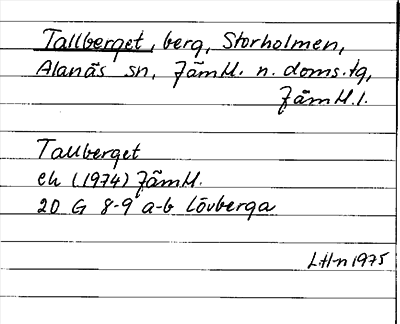 Tallberget, berg, Storholmen,
Alanäs sn, Jämtl. n. doms.tg,
Jämtl.l.
Tallberget
ek (1974) Jämtl.
20 G 8-9 a-b Lövberga
LHn 1975